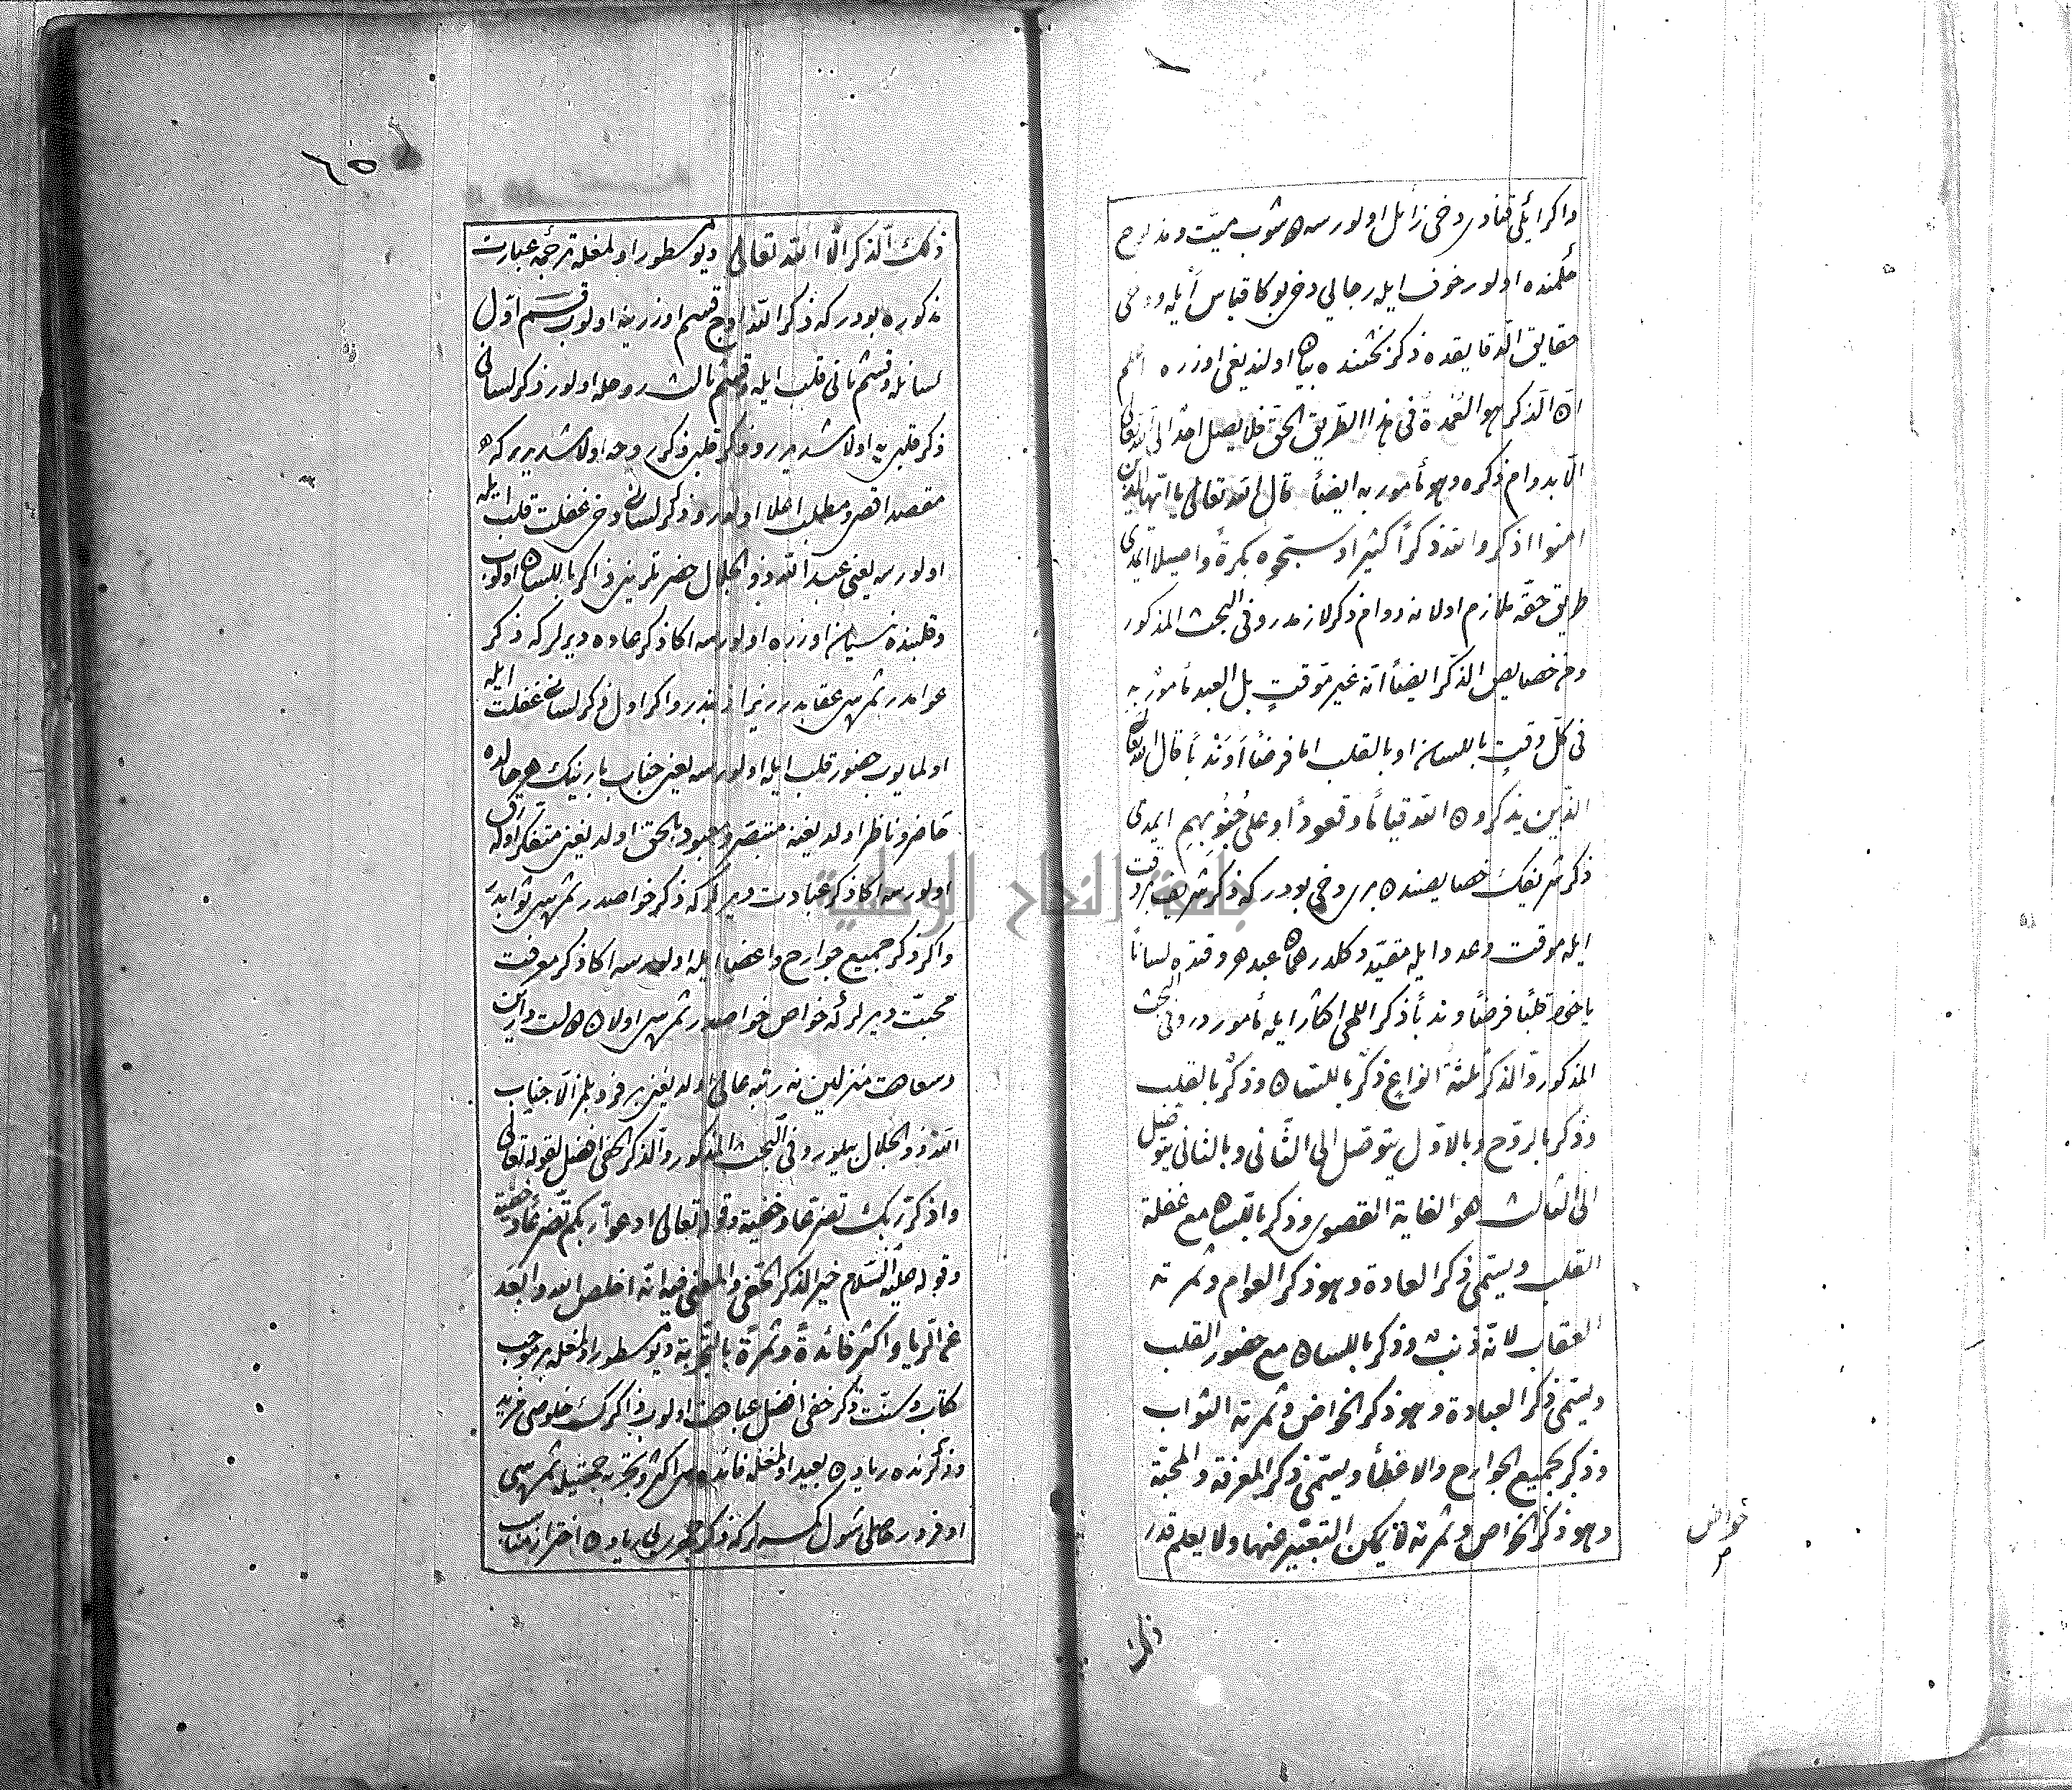 واكر ايكى قنادى دخى زائل اولورسه شوب ميّت و مذبوح
حكمنده اولور خوف ايله رجا لى دخى بوكا قياس ايله ودخى
حقايق الدقايقده ذكر بحثنده بيان اولنديغى اوزره اعلم
انّ الذكر هو العُمدة فى هذا الطريق الحق فلا يصل احد الى الله تعالى
الّا بدوام ذكره وهو مأمور به ايضاً قال الله تعالى يا ايّها الذين
امنوا اذكروا الله ذكراً كثيرا وسبّحوه بكرةً واصيلا ايمدى
طريق حقّه ملازم اولانه دوام ذكر لازمدر وفى البحث المذكور
ومن خصايص الذّكر ايضاً انّه غير موقتٍ بل العبد مأمور به
فى كلّ وقتٍ باللسان او بالقلب اما فرضاً اَو نَدْباً قال الله تعالى
الّذين يذكرون الله قياماً وقعوداً وعلى جُنُوبِهِم ايمدى
ذكر شريفك خصايصنده برى دخى بودر كه ذكر شريف بر وقت
ايله موقت وعدد ايله مقيّد دكلدر همان عبد هر وقتده لساناً
ياخود قلبًا فرضًا و ندبأ ذكر اللهى اكثار ايله مأموردر وفى البحث
المذكور والذكر ثلثة انواعٍ ذكر باللسان وذكر بالقلب
وذكر بالروح وبالاوّل يتوصّل الى الثّانى وبالثانى يتوصّل
الى الثالث هو الغاية القصوى وذكر باللسان مع غفلة
القلب ويسمّى ذكر العادة وهو ذكر العوام وثمرته
العقاب لانّه ذنب وذكر باللسان مع حضور القلب
ويسمّى ذكر العبادة وهو ذكر الخواص وثمرته الثواب
وذكر بجميع الجوارح والاعضاً ويسمّى ذكر المعرفة والمحبّة
وهو ذكر الخواص وثمرته لا يمكن التعبير عنها ولا يعلم قدر
خواص
ذلك
٢٥
ذلك الذكر الّا الله تعالى ديو مسطور اولمغله ترجمهٔ عبارت
مذكوره بودر كه ذكر الله اوچ قسم اوزرينه اولوب قسم اوّل
لسانله وقسم ثانى قلب ايله وقسم ثالث روحله اولور ذكر لسانى
ذكر قلبى يه اولاشديرر وذكر قلبى ذكر روحه اولاشديرر كه
مقصد اقصى ومطلب اعلا اولدر وذكر لسانى دخى غفلت قلب ايله
اولورسه يعنى عبد الله ذو الجلال حضرتلرينى ذاكر باللسان اولوب
وقلبنده نسيان اوزره اولورسه اكا ذكر عاده ديرلر كه ذكر
عوامدر ثمره سى عقابدر زيرا ذنبدر واكر اول ذكر لسانى غفلت ايله
اولمايوب حضور قلب ايله اولورسه يعنى جناب بارينيك هر حالده
حاضر وناظر اولديغنه متبصّر ومعبود بالحق اولديغنى متفكر اولهرق
اولورسه اكا ذكر عبادت ديرلر كه ذكر خواصدر ثمره سى ثوابدر
واكر ذكر جميع جوارح واعضا ايله اولورسه اكا ذكر معرفت
محبّت ديرلر كه خواص خواصدر ثمره سى اولان دولت دارين
وسعادت منزلين نه رتبه عالى اولديغنى بر فرد بلمز الّا جناب
الله ذو الجلال بيلور وفى البحث المذكور والذكر الخفى افضل لقوله تعالى
واذكر ربّك تضرعا وخفية وقوله تعالى ادعوا ربكم تضرعًا وخفية
وقوله عليه السّلام خير الذكر الخفى والمعنى فيه انّه اخلص لله وابعد
عن الريا واكثر فائدةً وثمرةً بالتّجربة ديو مسطور اولمغله بر موجب
كتاب وسنّت ذكر خفى افضل عبادت اولوب ذاكرك خلوصى مزيد
وذكرنده ريادن بعيد اولمغله فائده سى اكثر وتجربه جهتيله ثمره سى
اوفردر حاصلى شول كمسه لر كه ذكر جهرى بى ريادن احتراز مناب